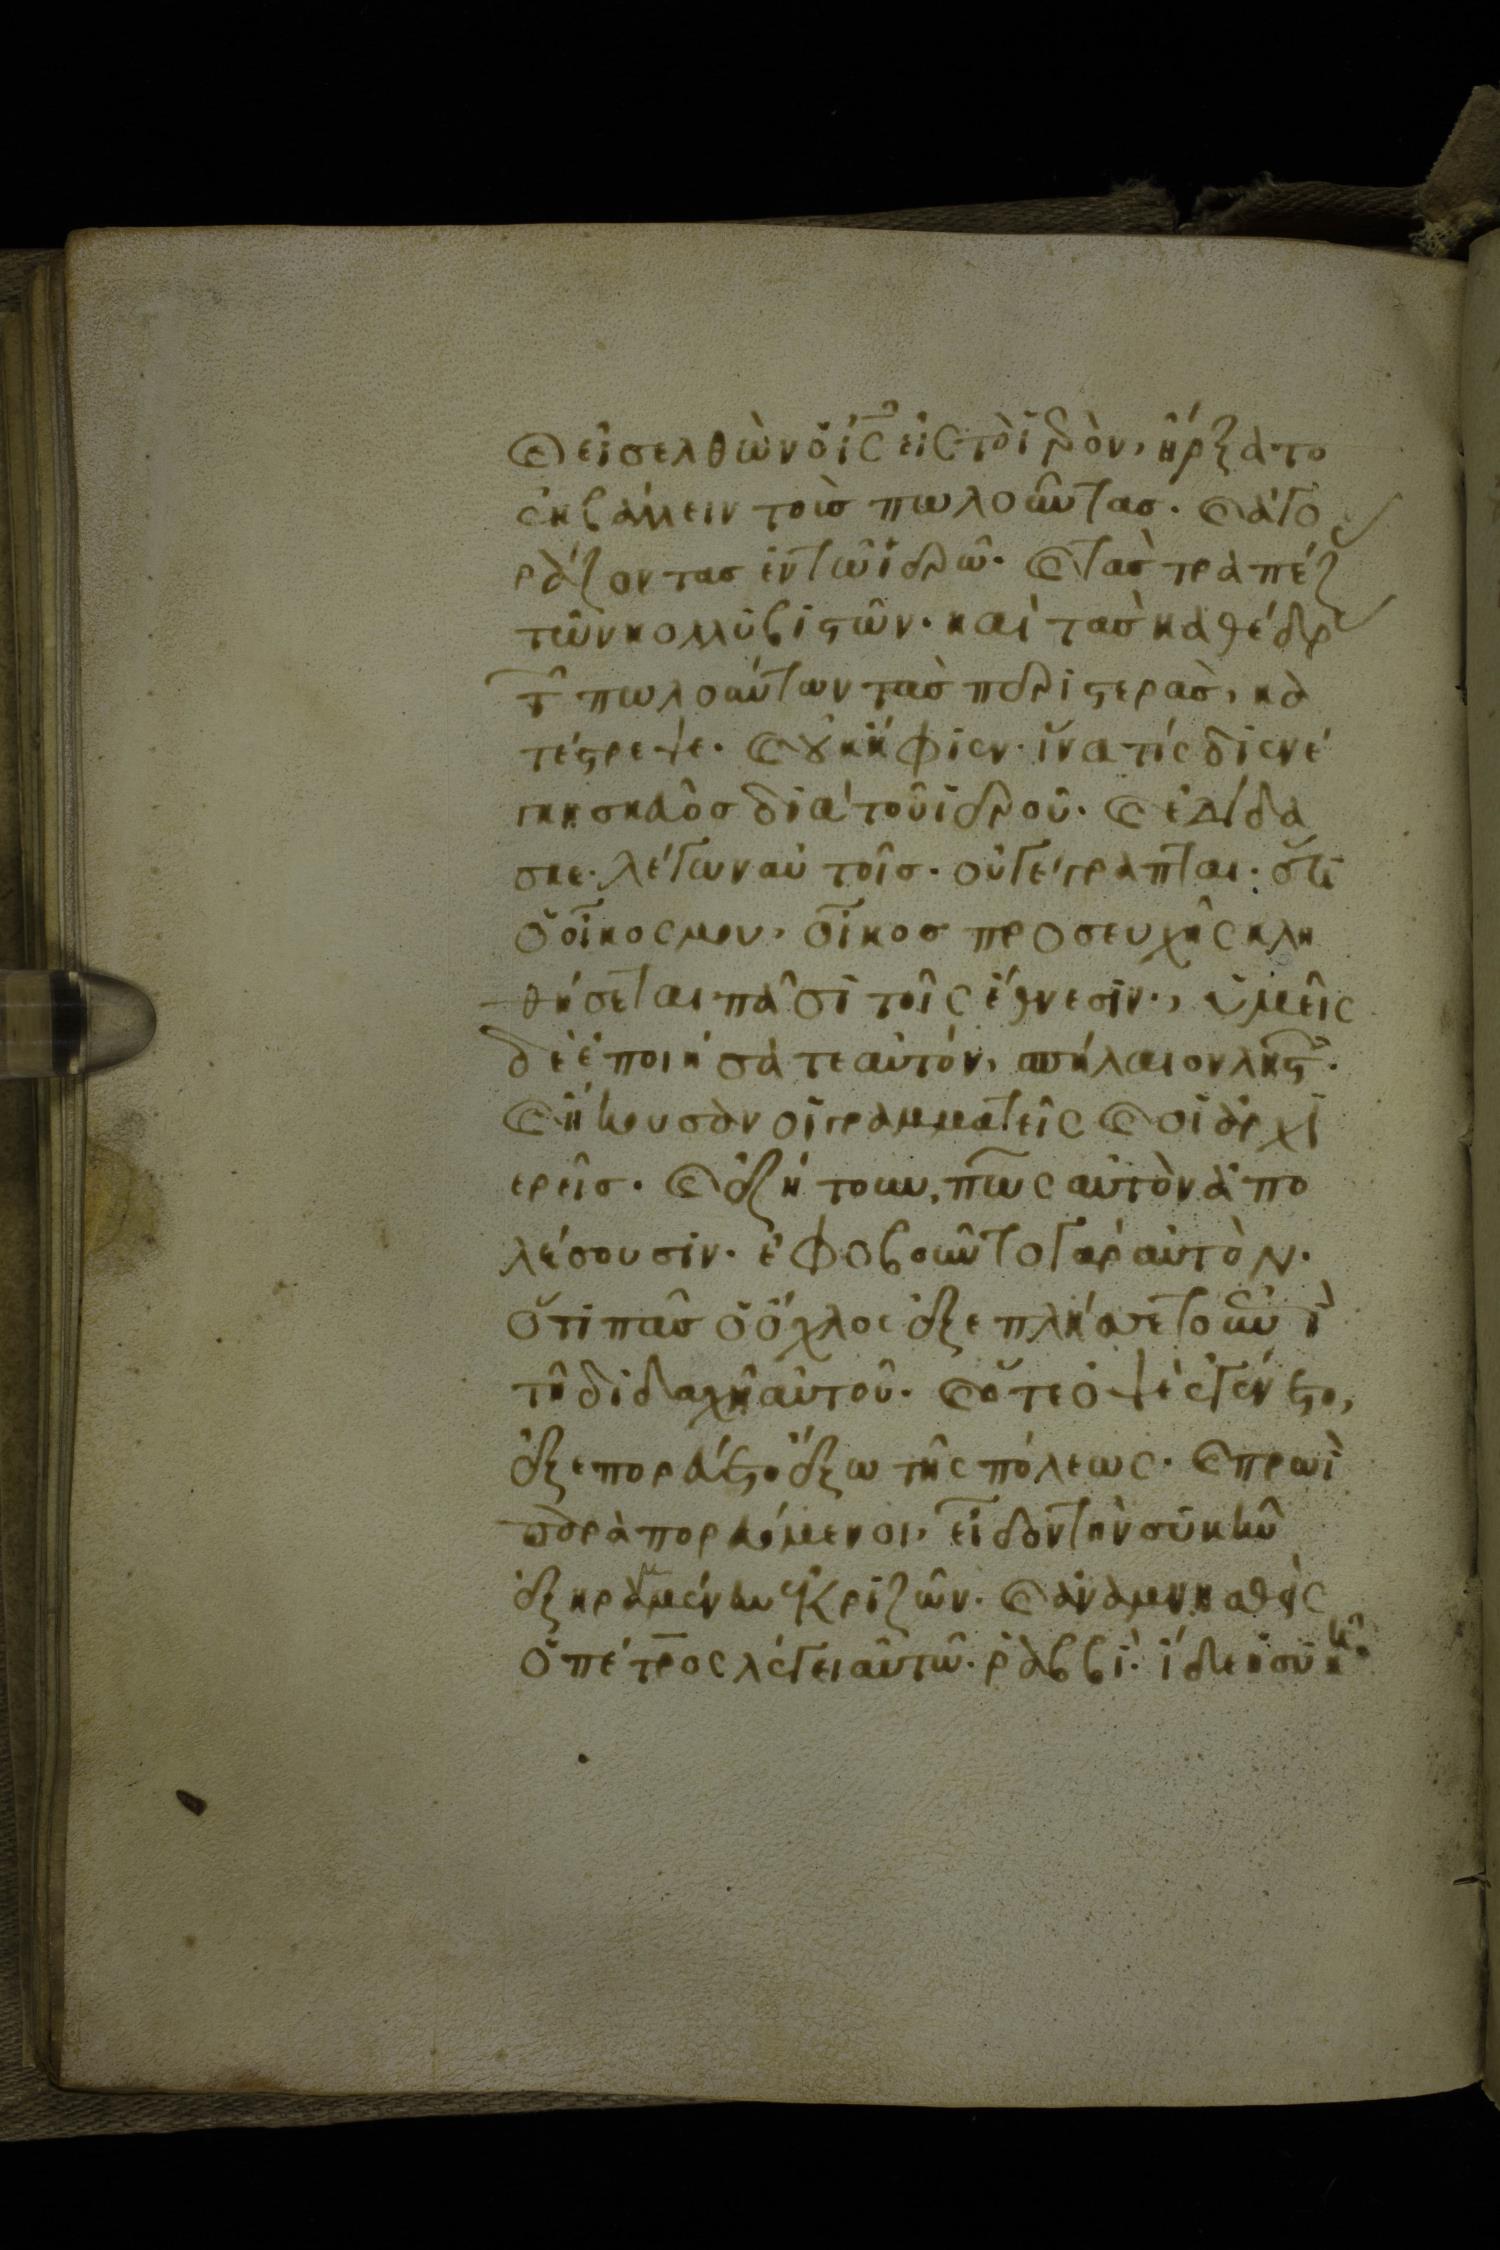 Ϗ εἰσελθὼν ὁ ις εἰς τὸ ἱερὸν, ἤρξατο
ἐκβάλλειν τοὺς πωλοῦντας. Ϗ ἀγο
ράζοντας ἐν τῶ ἱερῶ. Ϗ τὰς τραπέζ
τῶν κολλυβιστῶν. καὶ τὰς καθέδρ
τ πωλούντων τὰς περιστερὰς, κα
τέστρεψε. Ϗ οὐκ ἤφιεν. ἵνα τίς διενέ
γκη σκεῦος διὰ τοῦ ἱεροῦ. Ϗ ἐδίδα
σκε. λέγων αὐτοῖς. οὐ γέγραπται. ὅτι
ὁ οἶκος μου, οἶκος προσευχῆς κλη
θήσεται πᾶσι τοῖς ἔθνεσιν., ὑμεῖς
δὲ ἐποιήσατε αὐτόν, σπήλαιον ληστ.
Ϗ ἤκουσαν οἱ γραμματεῖς Ϗ οἱ ἀρχι
ερεῖς. Ϗ ἐζήτουν, πῶς αὐτὸν ἀπο
λέσουσιν. ἐφοβοῦντο γὰρ αὐτὸν.
ὅτι πᾶς ὁ ὄχλος ἐξεπλήσσετο ἐπὶ
τῆ διδαχῆ αὐτοῦ. Ϗ ὅτε ὀψὲ ἐγένετο,
ἐξεπορεύετο ἔξω τῆς πόλεως. Ϗ πρωῒ
παραπορευόμενοι, εἶδον τὴν συκῆν
ἐξηραμμένην ἐκ ριζῶν. Ϗ ἀναμνησθεὶς
ὁ πέτρος λέγει αὐτῶ. ῥαββὶ. ἴδε ἡ συκῆ.